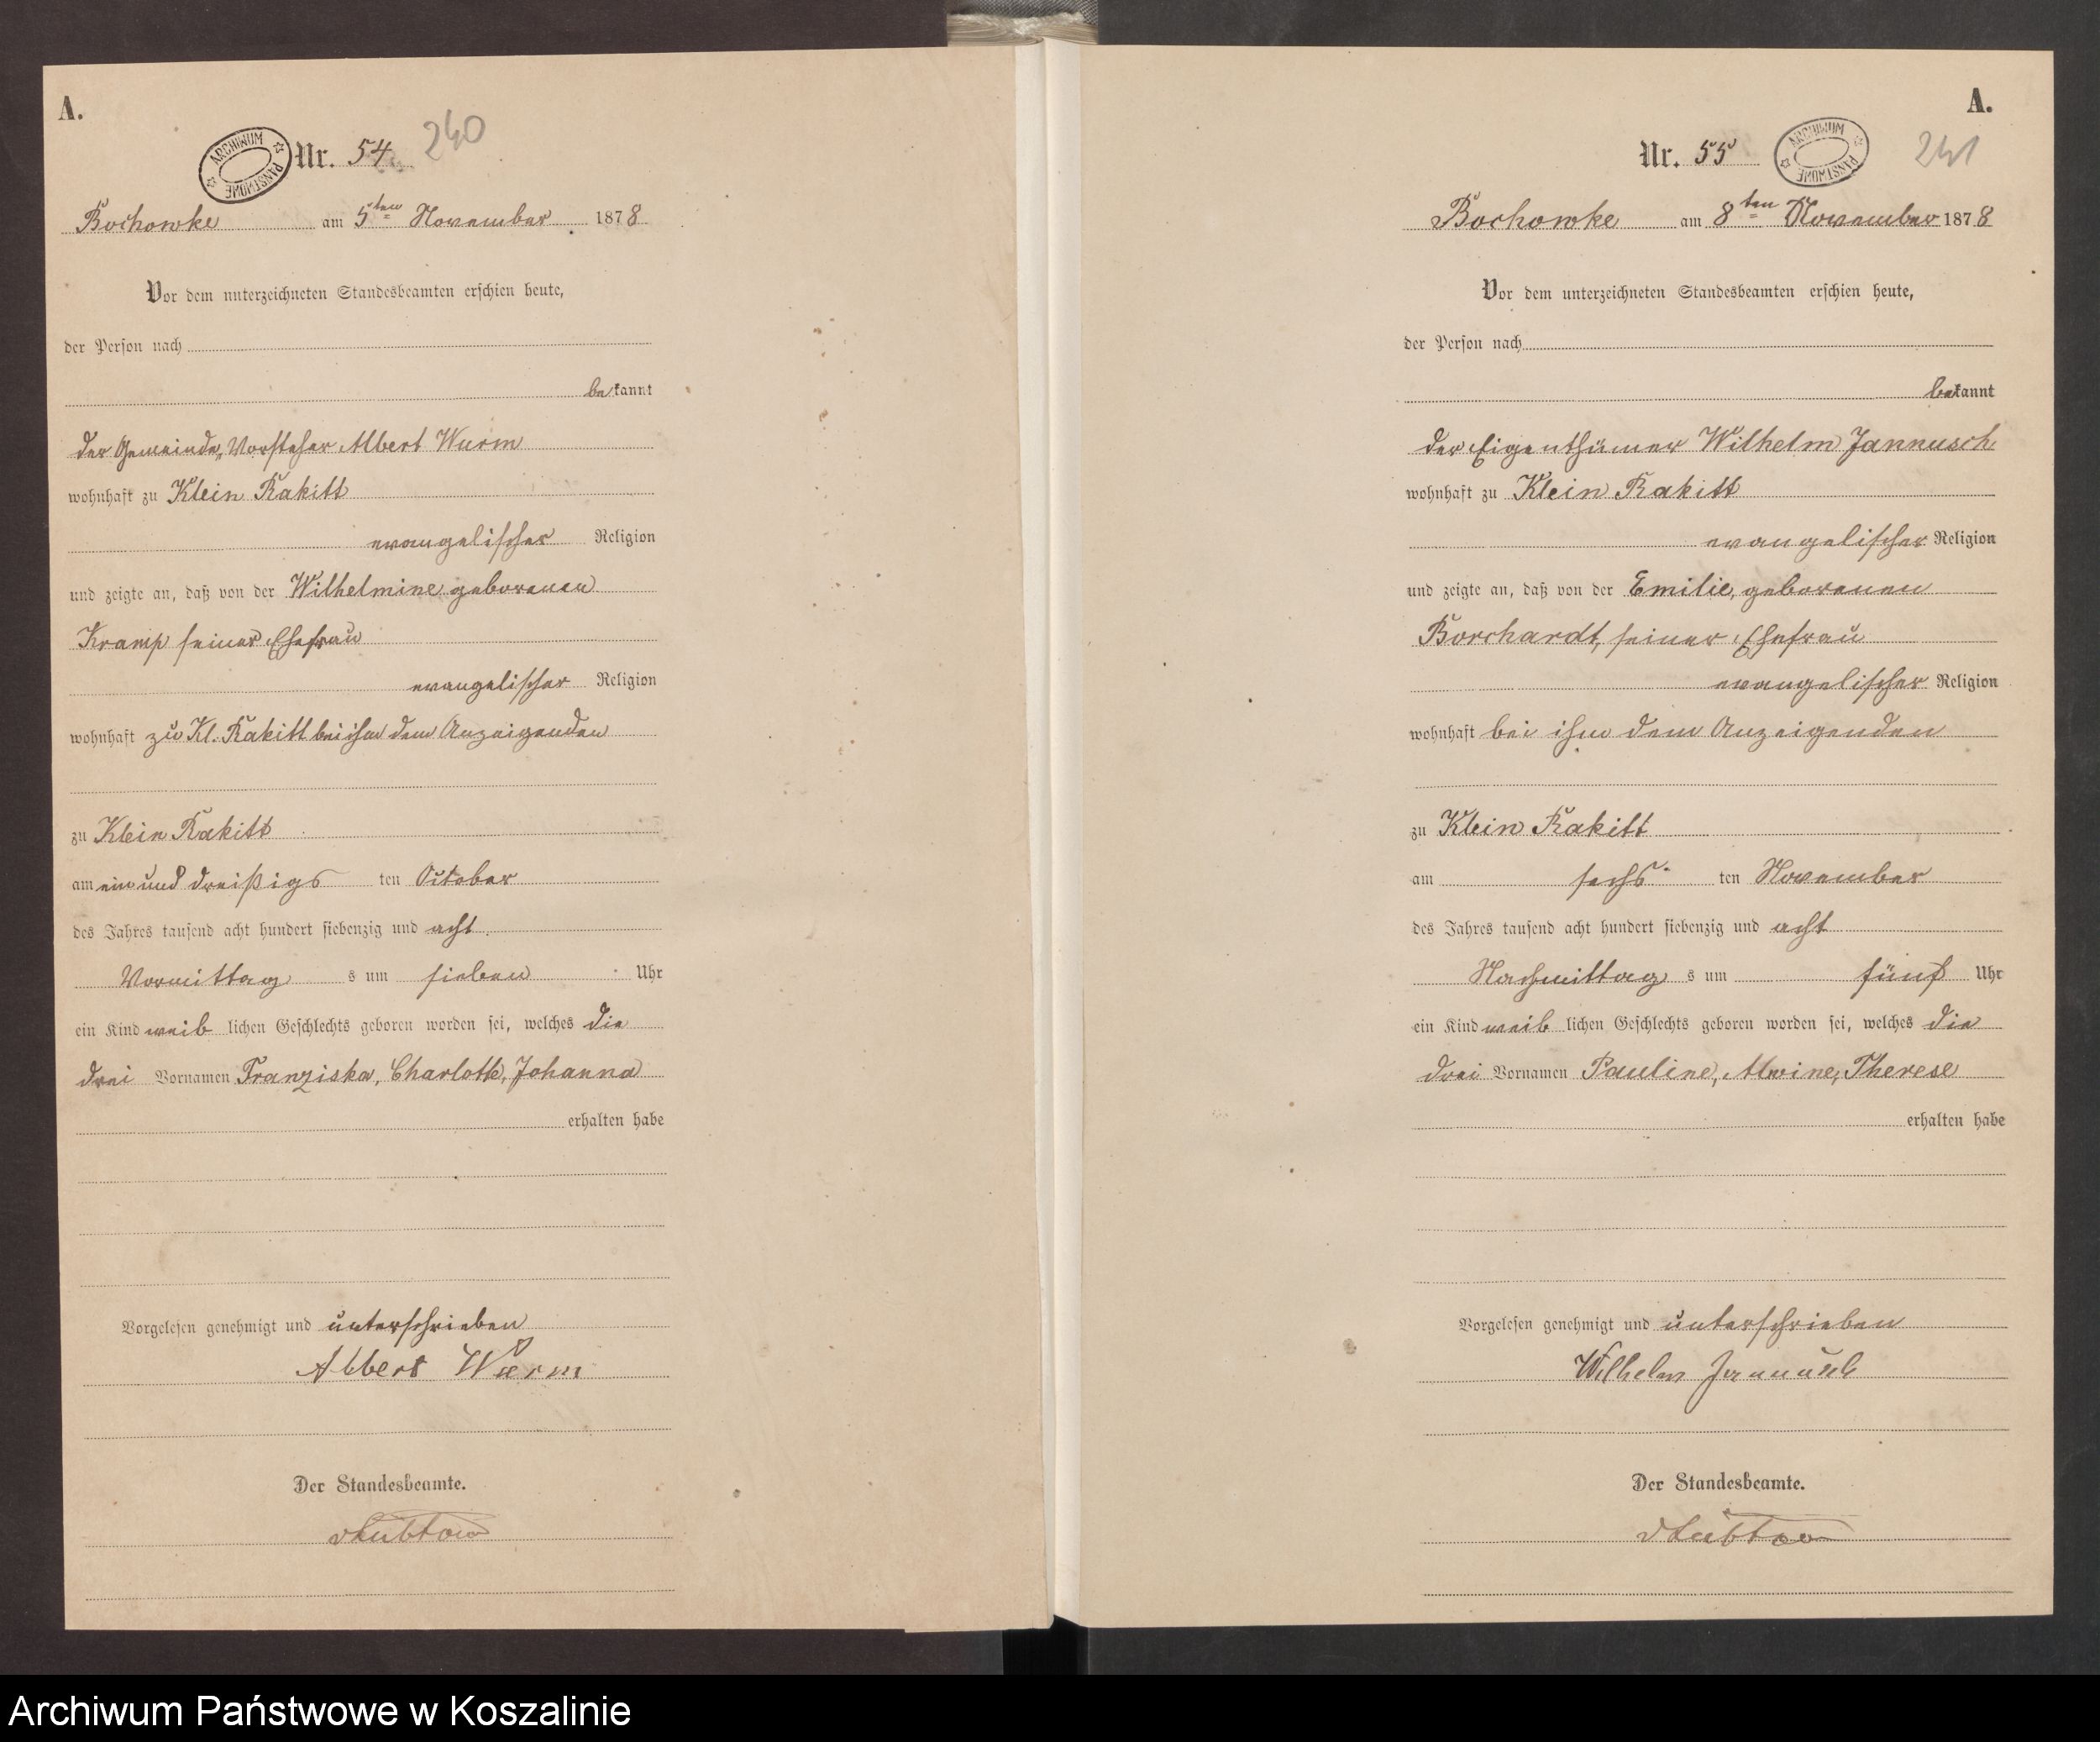 A.
ARCHIWUM PAŃSTWOWE
Nr. 54.
240
Bochowke am 5ten November 1878
Vor dem unterzeichneten Standesbeamten erschien heute,
der Person nach
bekannt
der Gemeinde-Vorsteher Albert Wurm
wohnhaft zu Klein Rakitt
evangelischer Religion
und zeigte an, daß von der Wilhelmine geborenen
Kramp seiner Ehefrau
evangelischer Religion
wohnhaft zu Kl. Rakitt bei ihm dem Anzeigenden
zu Klein Rakitt
am ein und dreißigs ten October
des Jahres tausend acht hundert siebenzig und acht
Vormittag s um sieben Uhr
ein Kind weib lichen Geschlechts geboren worden sei, welches die
drei Vornamen Franziska, Charlotte, Johanna
erhalten habe
Vorgelesen genehmigt und unterschrieben
Albert Wurm
Der Standesbeamte.
A.
Nr. 55
ARCHIWUM PAŃSTWOWE
241
Bochowke am 8ten November 1878
Vor dem unterzeichneten Standesbeamten erschien heute,
der Person nach
bekannt
der Eigenthümer Wilhelm Jannusch
wohnhaft zu Klein Rakitt
evangelischer Religion
und zeigte an, daß von der Emilie, geborenen
Borchardt, seiner Ehefrau
evangelischer Religion
wohnhaft bei ihm dem Anzeigenden
zu Klein Rakitt
am sechs ten November
des Jahres tausend acht hundert siebenzig und acht
Nachmittag s um fünf Uhr
ein Kind weib lichen Geschlechts geboren worden sei, welches die
drei Vornamen Pauline, Alwine, Therese
erhalten habe
Vorgelesen genehmigt und unterschrieben
Wilhelm Jannusch
Der Standesbeamte.
Archiwum Państwowe w Koszalinie